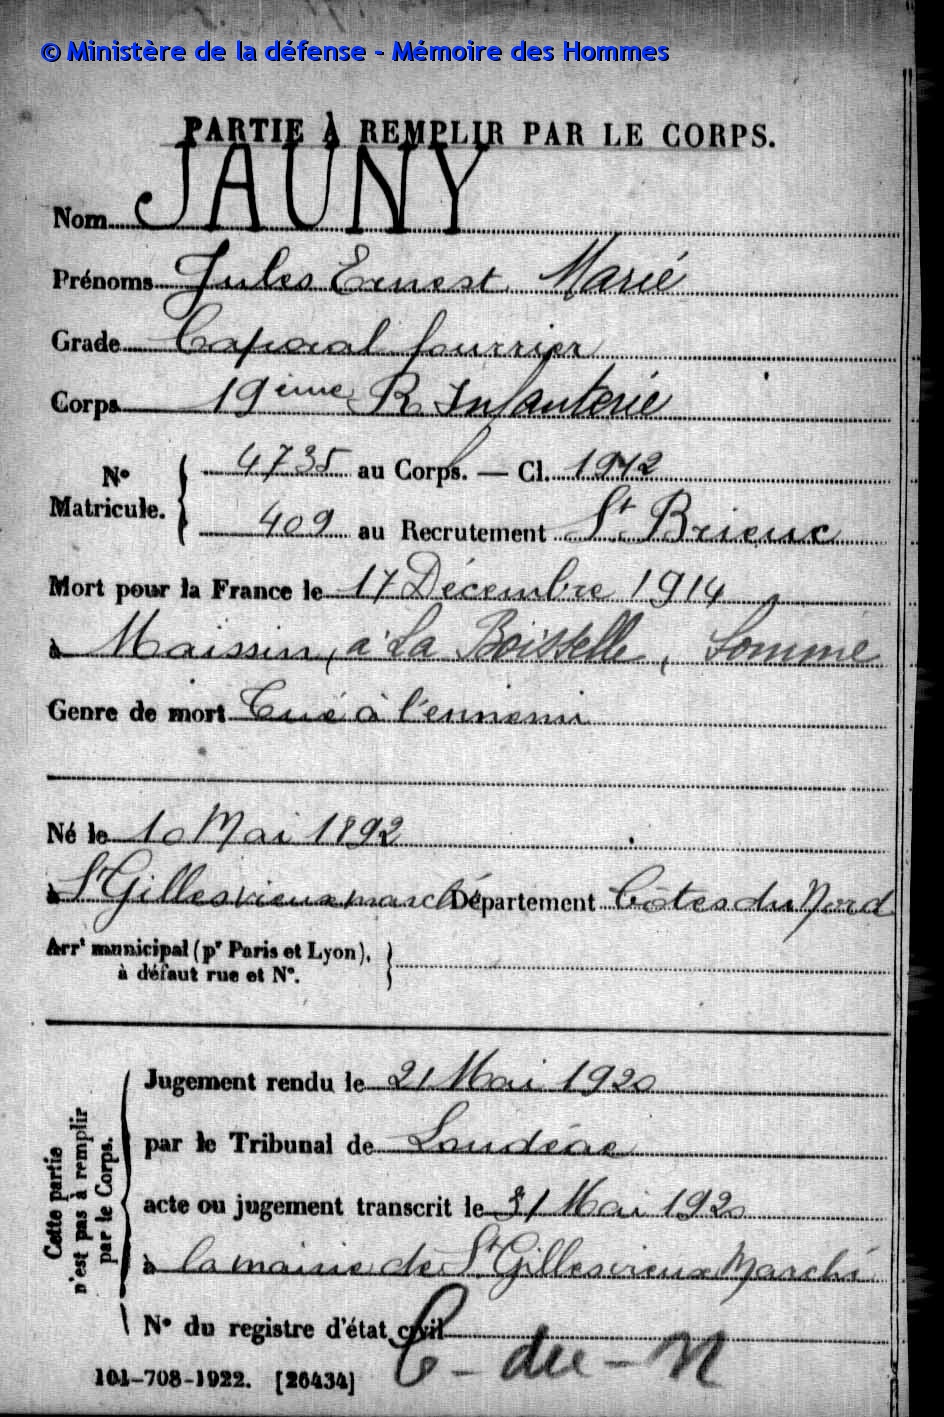 © Ministère de la défense - Mémoire des Hommes
PARTIE À REMPLIR PAR LE CORPS.
Nom JAUNY
Prénoms Jules Ernest Marie
Grade Caporal fourrier
Corps 19ème R Infanterie
N° Matricule. 4735 au Corps. — Cl. 1912
409 au Recrutement St Brieuc
Mort pour la France le 17 Décembre 1914
à Maissin, à La Boisselle, Somme
Genre de mort Tué à l'ennemi
Né le 10 Mai 1892
à St Gilles vieux marché Département Côtes du Nord
Arrt municipal (pr Paris et Lyon),
à défaut rue et N°.
Cette partie n'est pas à remplir par le Corps.
Jugement rendu le 21 Mai 1920
par le Tribunal de Loudéac
acte ou jugement transcrit le 31 Mai 1920
à la mairie de St Gilles vieux Marché
N° du registre d'état civil
C - du - N
101-708-1922. [26434]